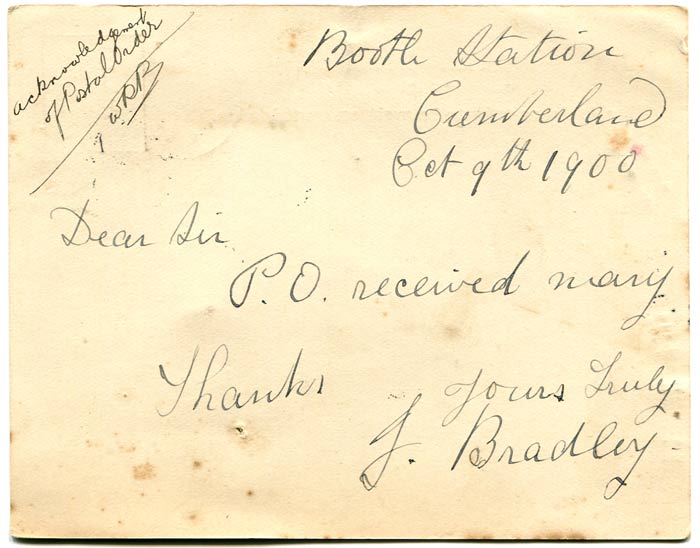 acknowledgement
of Postal Order
WRB
Bootle Station
Cumberland
Oct 9th 1900
Dear Sir
P.O. received many
Thanks
Yours Truly
J. Bradley